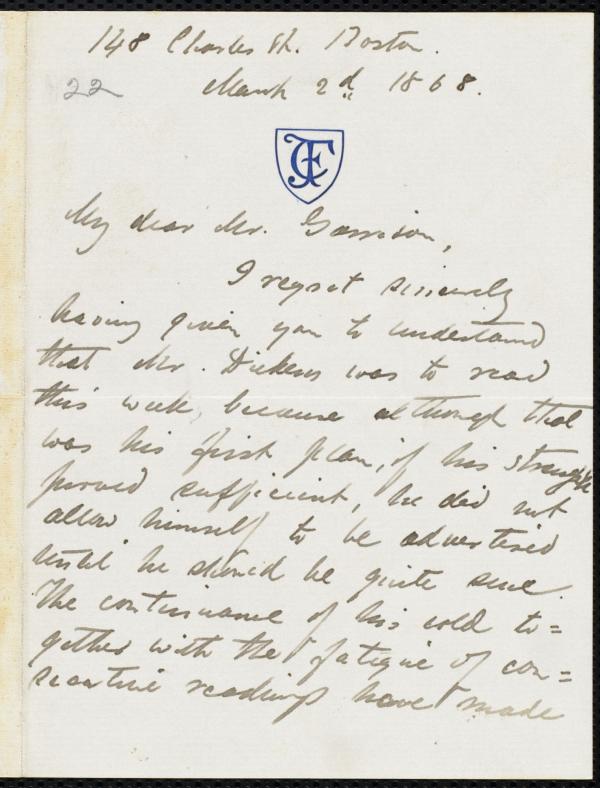 148 Charles St. Boston.
22
March 2d 1868.
My dear Mr. Garrison,
I regret sincerely
having given you to understand
that Mr. Dickens was to read
this week, because although that
was his first plan, if his strength
proved sufficient, he did not
allow himself to be advertised
until he should be quite sure.
The continuance of his cold to=
gether with the fatigue of con=
secutive readings have made